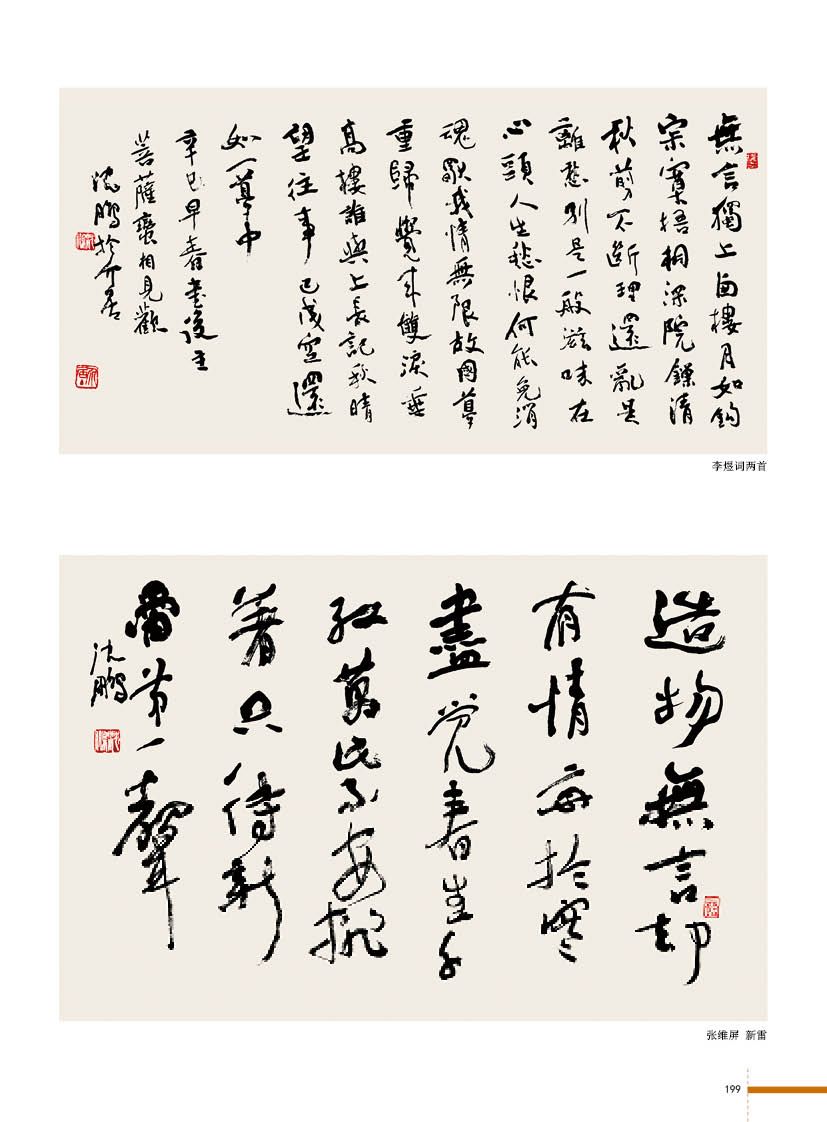 無言獨上西樓月如鈎
寂寞梧桐深院鎖清
秋剪不斷理還亂是
離愁別是一般滋味在
心頭人生愁恨何能免消
魂獨我情無限故國夢
重歸覺來雙淚垂
高樓誰與上長記秋晴
望往事已成空還
如一夢中
辛巳早春書後主
菩薩蠻相見歡
沈鵬於介居
李煜词两首
造物無言却
有情每於寒
盡覺春生千
紅萬紫安排
著只待新
雷第一聲
沈鵬
张维屏 新雷
199